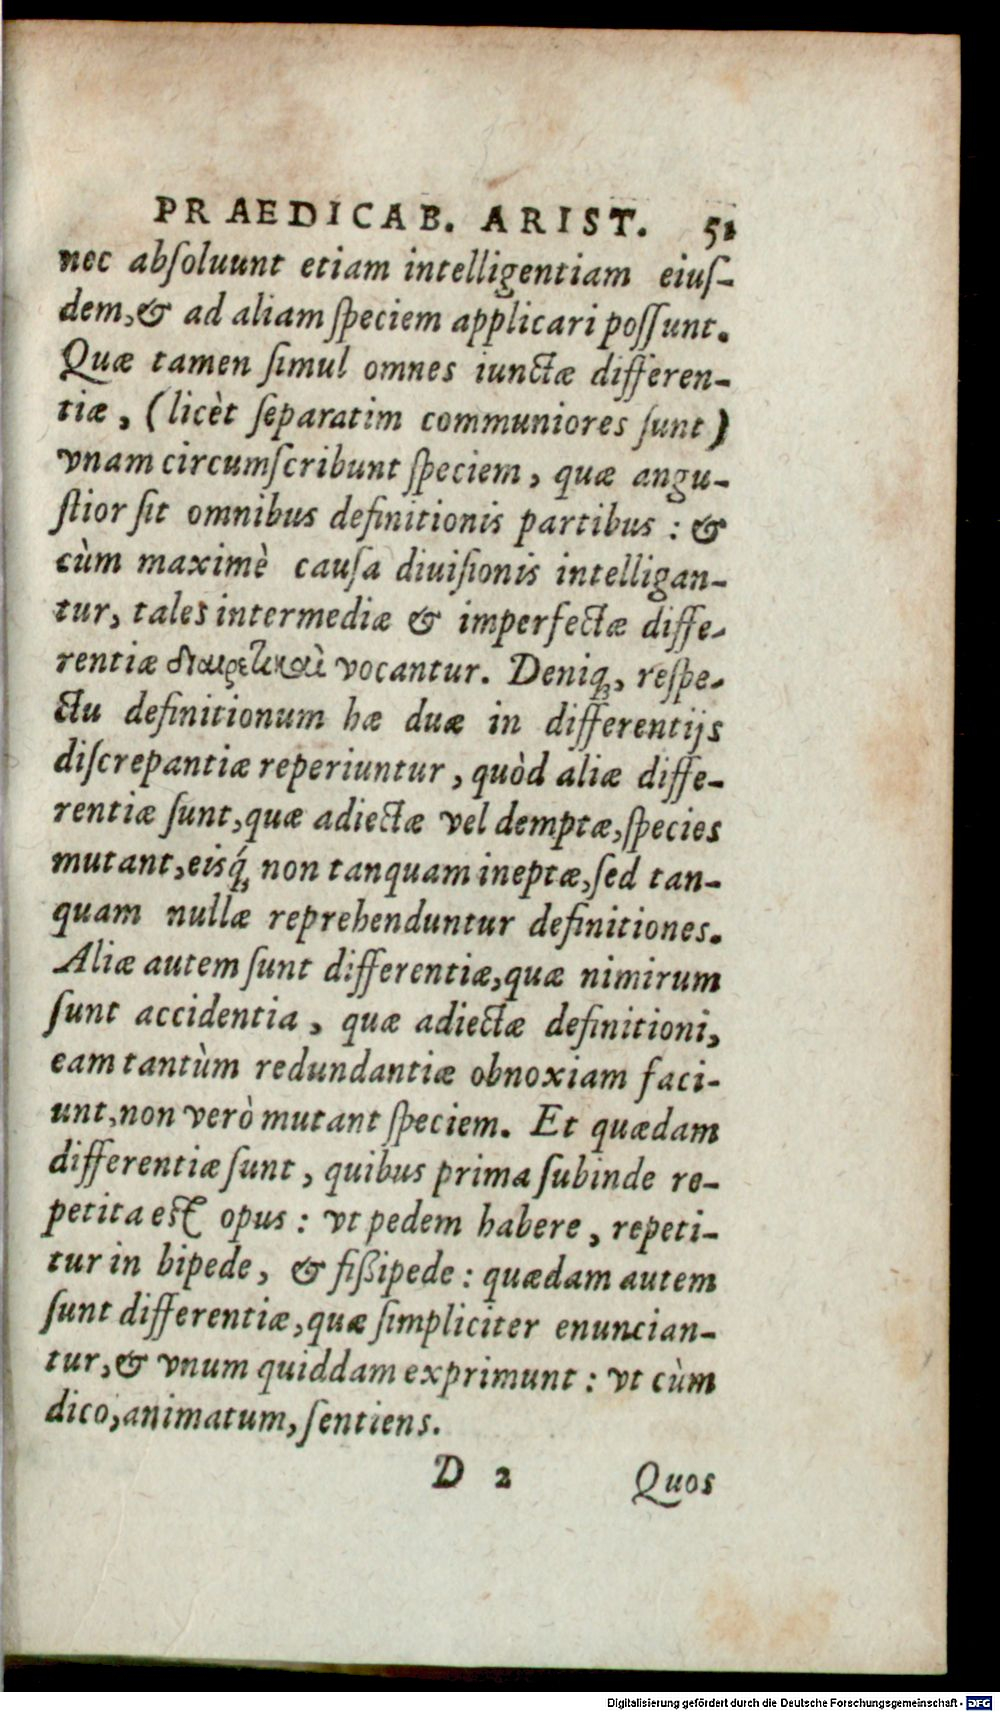 PRAEDICAB. ARIST. 51
nec abſoluunt etiam intelligentiam eiuſ-
dem, & ad aliam ſpeciem applicari poſſunt.
Quæ tamen ſimul omnes iunctæ differen-
tiæ, (licèt ſeparatim communiores ſunt)
vnam circumſcribunt ſpeciem, quæ angu-
ſtior ſit omnibus definitionis partibus : &
cùm maximè cauſa diuiſionis intelligan-
tur, tales intermediæ & imperfectæ diffe-
rentiæ διαιρετικαὶ vocantur. Deniq;, reſpe-
ctu definitionum hæ duæ in differentijs
diſcrepantiæ reperiuntur, quòd aliæ diffe-
rentiæ ſunt, quæ adiectæ vel demptæ, ſpecies
mutant, eisq́; non tanquam ineptæ, ſed tan-
quam nullæ reprehenduntur definitiones.
Aliæ autem ſunt differentiæ, quæ nimirum
ſunt accidentia, quæ adiectæ definitioni,
eam tantùm redundantiæ obnoxiam faci-
unt, non verò mutant ſpeciem. Et quædam
differentiæ ſunt, quibus prima ſubinde re-
petita eſt opus : vt pedem habere, repeti-
tur in bipede, & fißipede : quædam autem
ſunt differentiæ, quæ ſimpliciter enuncian-
tur, & vnum quiddam exprimunt : vt cùm
dico, animatum, ſentiens.
D 2 Quos
Digitalisierung gefördert durch die Deutsche Forschungsgemeinschaft - DFG